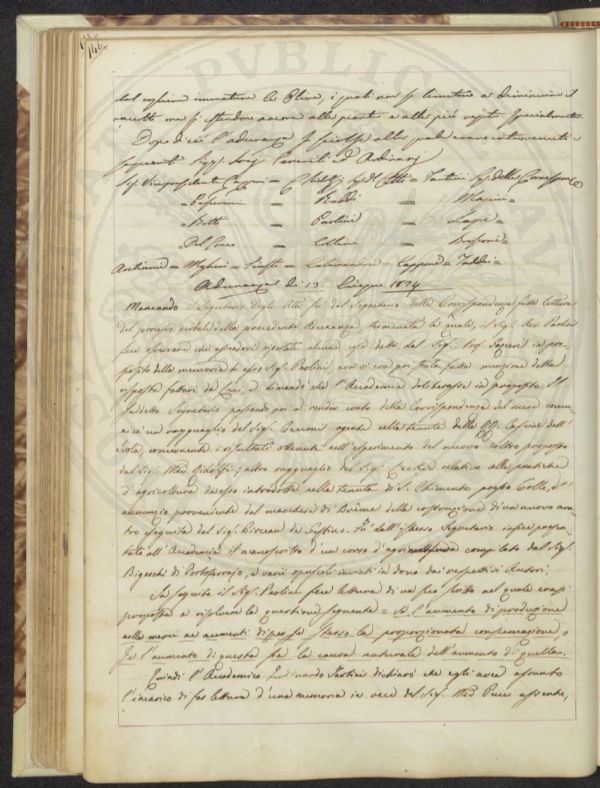 146
dal cogliere immature le Olive, i quali non si limitano a diminuire il
raccolto ma si estendono ancora alle piante e alle più vegete specialmente.
Dopo di ciò l'adunanza si sciolse alla quale erano intervenuti i
seguenti Sigg. Soci Emeriti ed Ordinarj
Sig. Vicepresidente = Ridolfi Seg. d. Atti = Tartini Seg. della Corrispond.
= Passerini = Raddi = Mazzini =
= Betti = Paolini = Lapi =
Del Greco = Collini =
= = = = Capponi = Taddei =
Adunanza de 13 Giugno 1824
Mancando il Segretario degli Atti fu dal Segretario della Corrispondenza fatta lettura
del processo verbale della precedente Adunanza terminata la quale, il Sig. Paolini
fece osservare che essendovi riportate alcune cose dette dal Sig. Prof. in pro-
posito della memoria di esso Sig. Paolini, non vi era poi stata fatta menzione della
risposta fattavi da Lui, domandò che l'Accademia deliberasse in proposito. Il
suddetto Segretario passando poi a render conto della Corrispondenza del mese comu-
nicò un ragguaglio del Sig. agente nella tenuta delle dell'
Isola, concernente i risultati ottenuti nell'esperimento del nuovo coltro proposto
dal Sig. March. Ridolfi; altro ragguaglio del Sig. relativo alle pratiche
d'agricoltura da esso introdotte nella tenuta di S. Chimento presso Colle, e l'
annunzio proveniente dal marchese di Brême della costruzione di un nuovo ara-
tro eseguita dal Sig. . Fu dall'istesso Segretario infine presen-
tato all'Accademia il manoscritto d'un corso d'agricoltura compilato dal Sig.
Bigeschi di Portoferrajo, e varj opuscoli inviati in dono dai rispettivi Autori.
In seguito il Sig. Paolini fece lettura di un suo scritto nel quale erasi
proposto di risolvere la questione seguente = Se l'aumento di produzione
nelle merci ne aumenti di per se stesso la proporzionata consumazione, o
se l'aumento di questa sia la causa naturale dell'aumento di quella.
Quindi l'Accademico Ferdinando Tartini dichiarò che egli avea assunto
l'incarico di far lettura d'una memoria in vece del Sig. Pucci assente,